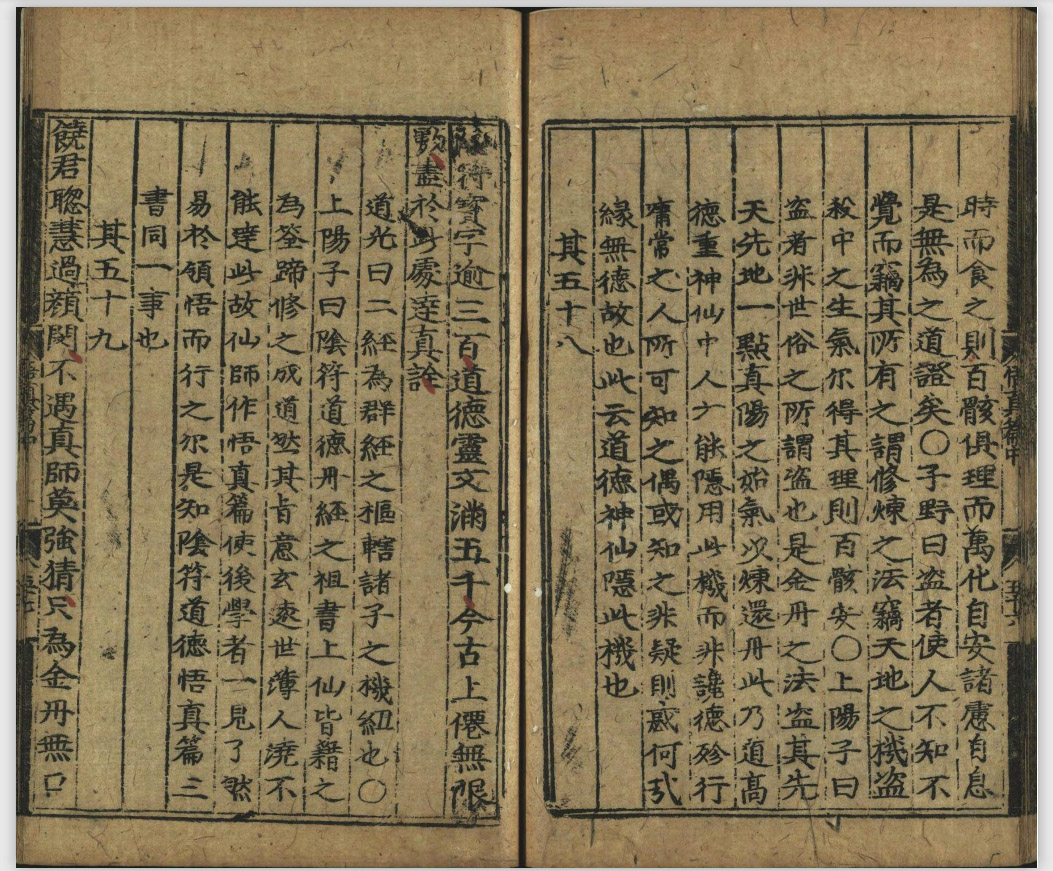 時而食之則百骸俱理而萬化自安諸慮自息
是無為之道證矣〇子野曰盗者使人不知不
覺而竊其所有之謂修煉之法竊天地之機盗
殺中之生氣尔得其理則百骸安〇上陽子曰
盗者非世俗之所謂盗也是金丹之法盗其先
天先地一點真陽之始氣以煉還丹此乃道高
德重神仙中人方能隱用此機而非讒德殄行
庸常之人所可知之偶或知之非疑則惑何哉
緣無德故也此云道德神仙隱此機也
其五十八
陰符寳字逾三百道德靈文滿五千今古上僊無限
數盡於此處達真詮
道光曰二經為群經之樞轄諸子之機紐也〇
上陽子曰陰符道德丹經之祖書上仙皆籍之
為筌蹄修之成道然其旨意玄遠世薄人澆不
能達此故仙師作悟真篇使後學者一見了然
易於領悟而行之尔是知陰符道德悟真篇三
書同一事也
其五十九
饒君聦慧過顏閔不遇真師莫強猜只為金丹無口